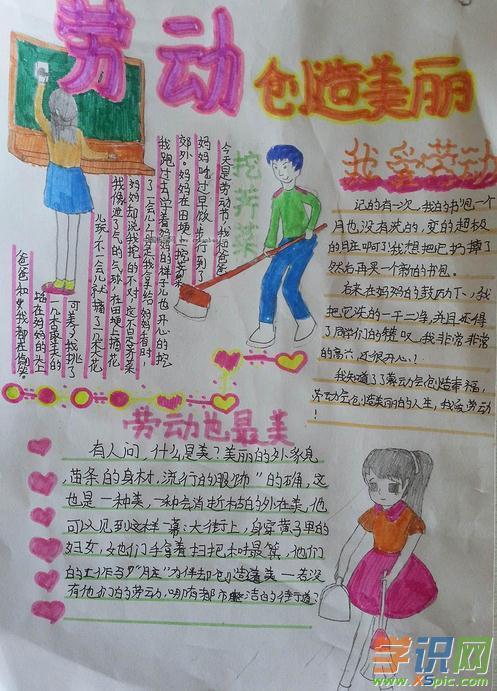 劳动
创造美丽
挖荠菜
今天是劳动节，我和爸爸
妈妈吃过早饭，步行到了
郊外。妈妈在田埂上挖荠菜
我跑过去学着妈妈的样子儿也开心的挖
了一会儿，可是我拿给妈妈看时，
妈妈却说我挖的不对，这不是荠菜
我像泄了气的气球，在田埂上摘花
儿玩不一会儿就摘了几大花
可美了，我挑了
几朵最美的
插在妈妈的头上
爸爸和我都在偷笑
我爱劳动
记的有一次，我的书包一个
月也没有洗的，变的超极
的脏啊了！我想把它扔掉了
然后再买一个新的书包。
后来在妈妈的鼓励下，我
把它洗的一干二净，并且还得
了同学们的赞叹，我非常非常
的高兴还很开心！
我知道了了劳动会创造幸福，
劳动会创造美丽的人生，我爱劳动
！
劳动也最美
有人问，什么是美？美丽的外家息
苗条的身材，流行的服饰"的确，这
也是一种美，一种会消折枯的外在美，他
可以见到这样一幕：大街上，身穿黄子里的
妇女，她们手拿着扫把和最箕，他们
的工作与"脏"为伴却创造着美一若没
有他们的劳动，哪有都市洁白的街道了
学识网
XSpic.com